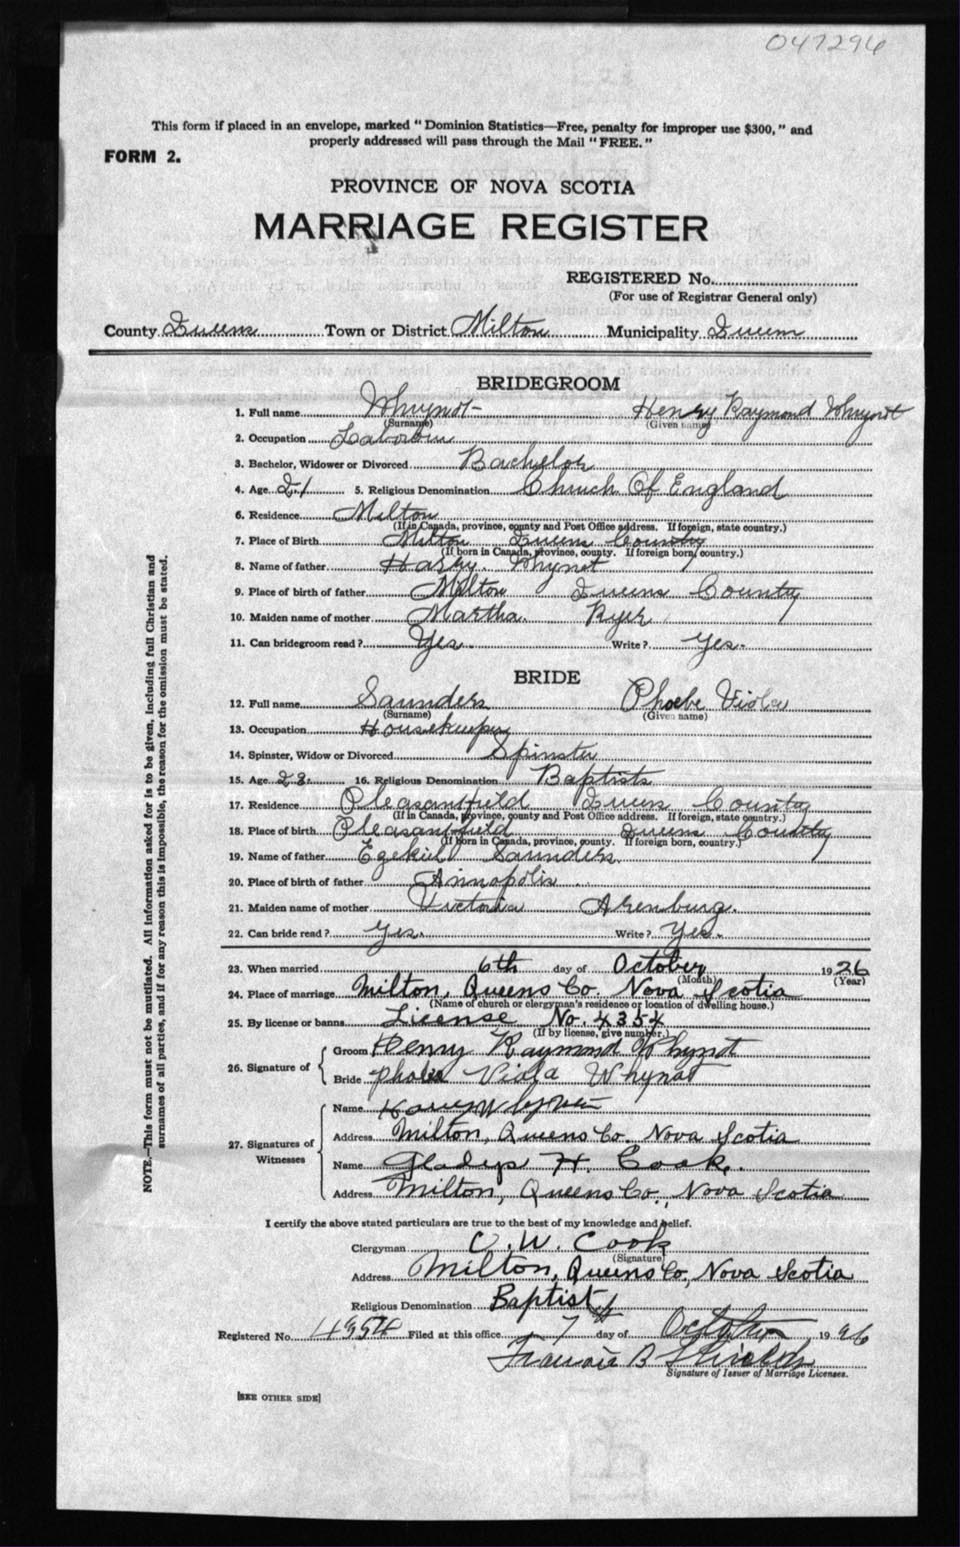 047296
This form if placed in an envelope, marked "Dominion Statistics—Free, penalty for improper use $300," and
properly addressed will pass through the Mail "FREE."
FORM 2.
PROVINCE OF NOVA SCOTIA
MARRIAGE REGISTER
REGISTERED No.
(For use of Registrar General only)
County Queens Town or District Milton Municipality Queens
BRIDEGROOM
1. Full name Whynot Henry Raymond Whynot
(Surname) (Given name)
2. Occupation
3. Bachelor, Widower or Divorced Bachelor
4. Age 21 5. Religious Denomination Church Of England
6. Residence Milton
(If in Canada, province, county and Post Office address. If foreign, state country.)
7. Place of Birth Milton Queens County
(If born in Canada, province, county. If foreign born, country.)
8. Name of father Harry. Whynot
9. Place of birth of father Milton Queens County
10. Maiden name of mother Martha. Ryer
11. Can bridegroom read? Yes. Write? Yes.
BRIDE
12. Full name Saunders Phoebe Viola
(Surname) (Given name)
13. Occupation Housekeeper
14. Spinster, Widow or Divorced Spinster
15. Age 16. Religious Denomination Baptists
17. Residence Pleasantfield Queens County
(If in Canada, province, county and Post Office address. If foreign, state country.)
18. Place of birth Pleasantfield Queens County
(If born in Canada, province, county. If foreign born, country.)
19. Name of father Ezekiel Saunders.
20. Place of birth of father Annapolis
21. Maiden name of mother Victoria Arenburg.
22. Can bride read? Yes. Write? Yes.
23. When married 6th day of October 1926
(Month) (Year)
24. Place of marriage Milton, Queens Co. Nova Scotia
(Name of church or clergyman's residence or location of dwelling house.)
25. By license or banns License No. 4354
(If by license, give number.)
26. Signature of
Groom Henry Raymond Whynot
Bride Viola Whynot
27. Signatures of
Witnesses
Name
Address Milton, Queens Co. Nova Scotia
Name Gladys H. Cook.
Address Milton, Queens Co., Nova Scotia
I certify the above stated particulars are true to the best of my knowledge and belief.
Clergyman W. Cook
(Signature)
Address Milton, Queens Co, Nova Scotia
Religious Denomination Baptist
Registered No. 4354 Filed at this office 7 day of October 1926
B Shields
Signature of Issuer of Marriage Licenses.
[SEE OTHER SIDE]
NOTE.—This form must not be mutilated. All information asked for is to be given, including full Christian and
surnames of all parties, and if for any reason this is impossible, the reason for the omission must be stated.